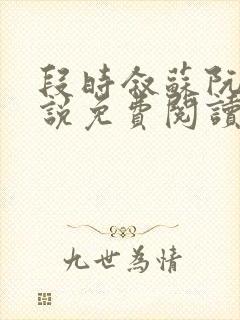 段時敘蘇阮
說免費閱讀
九世為情